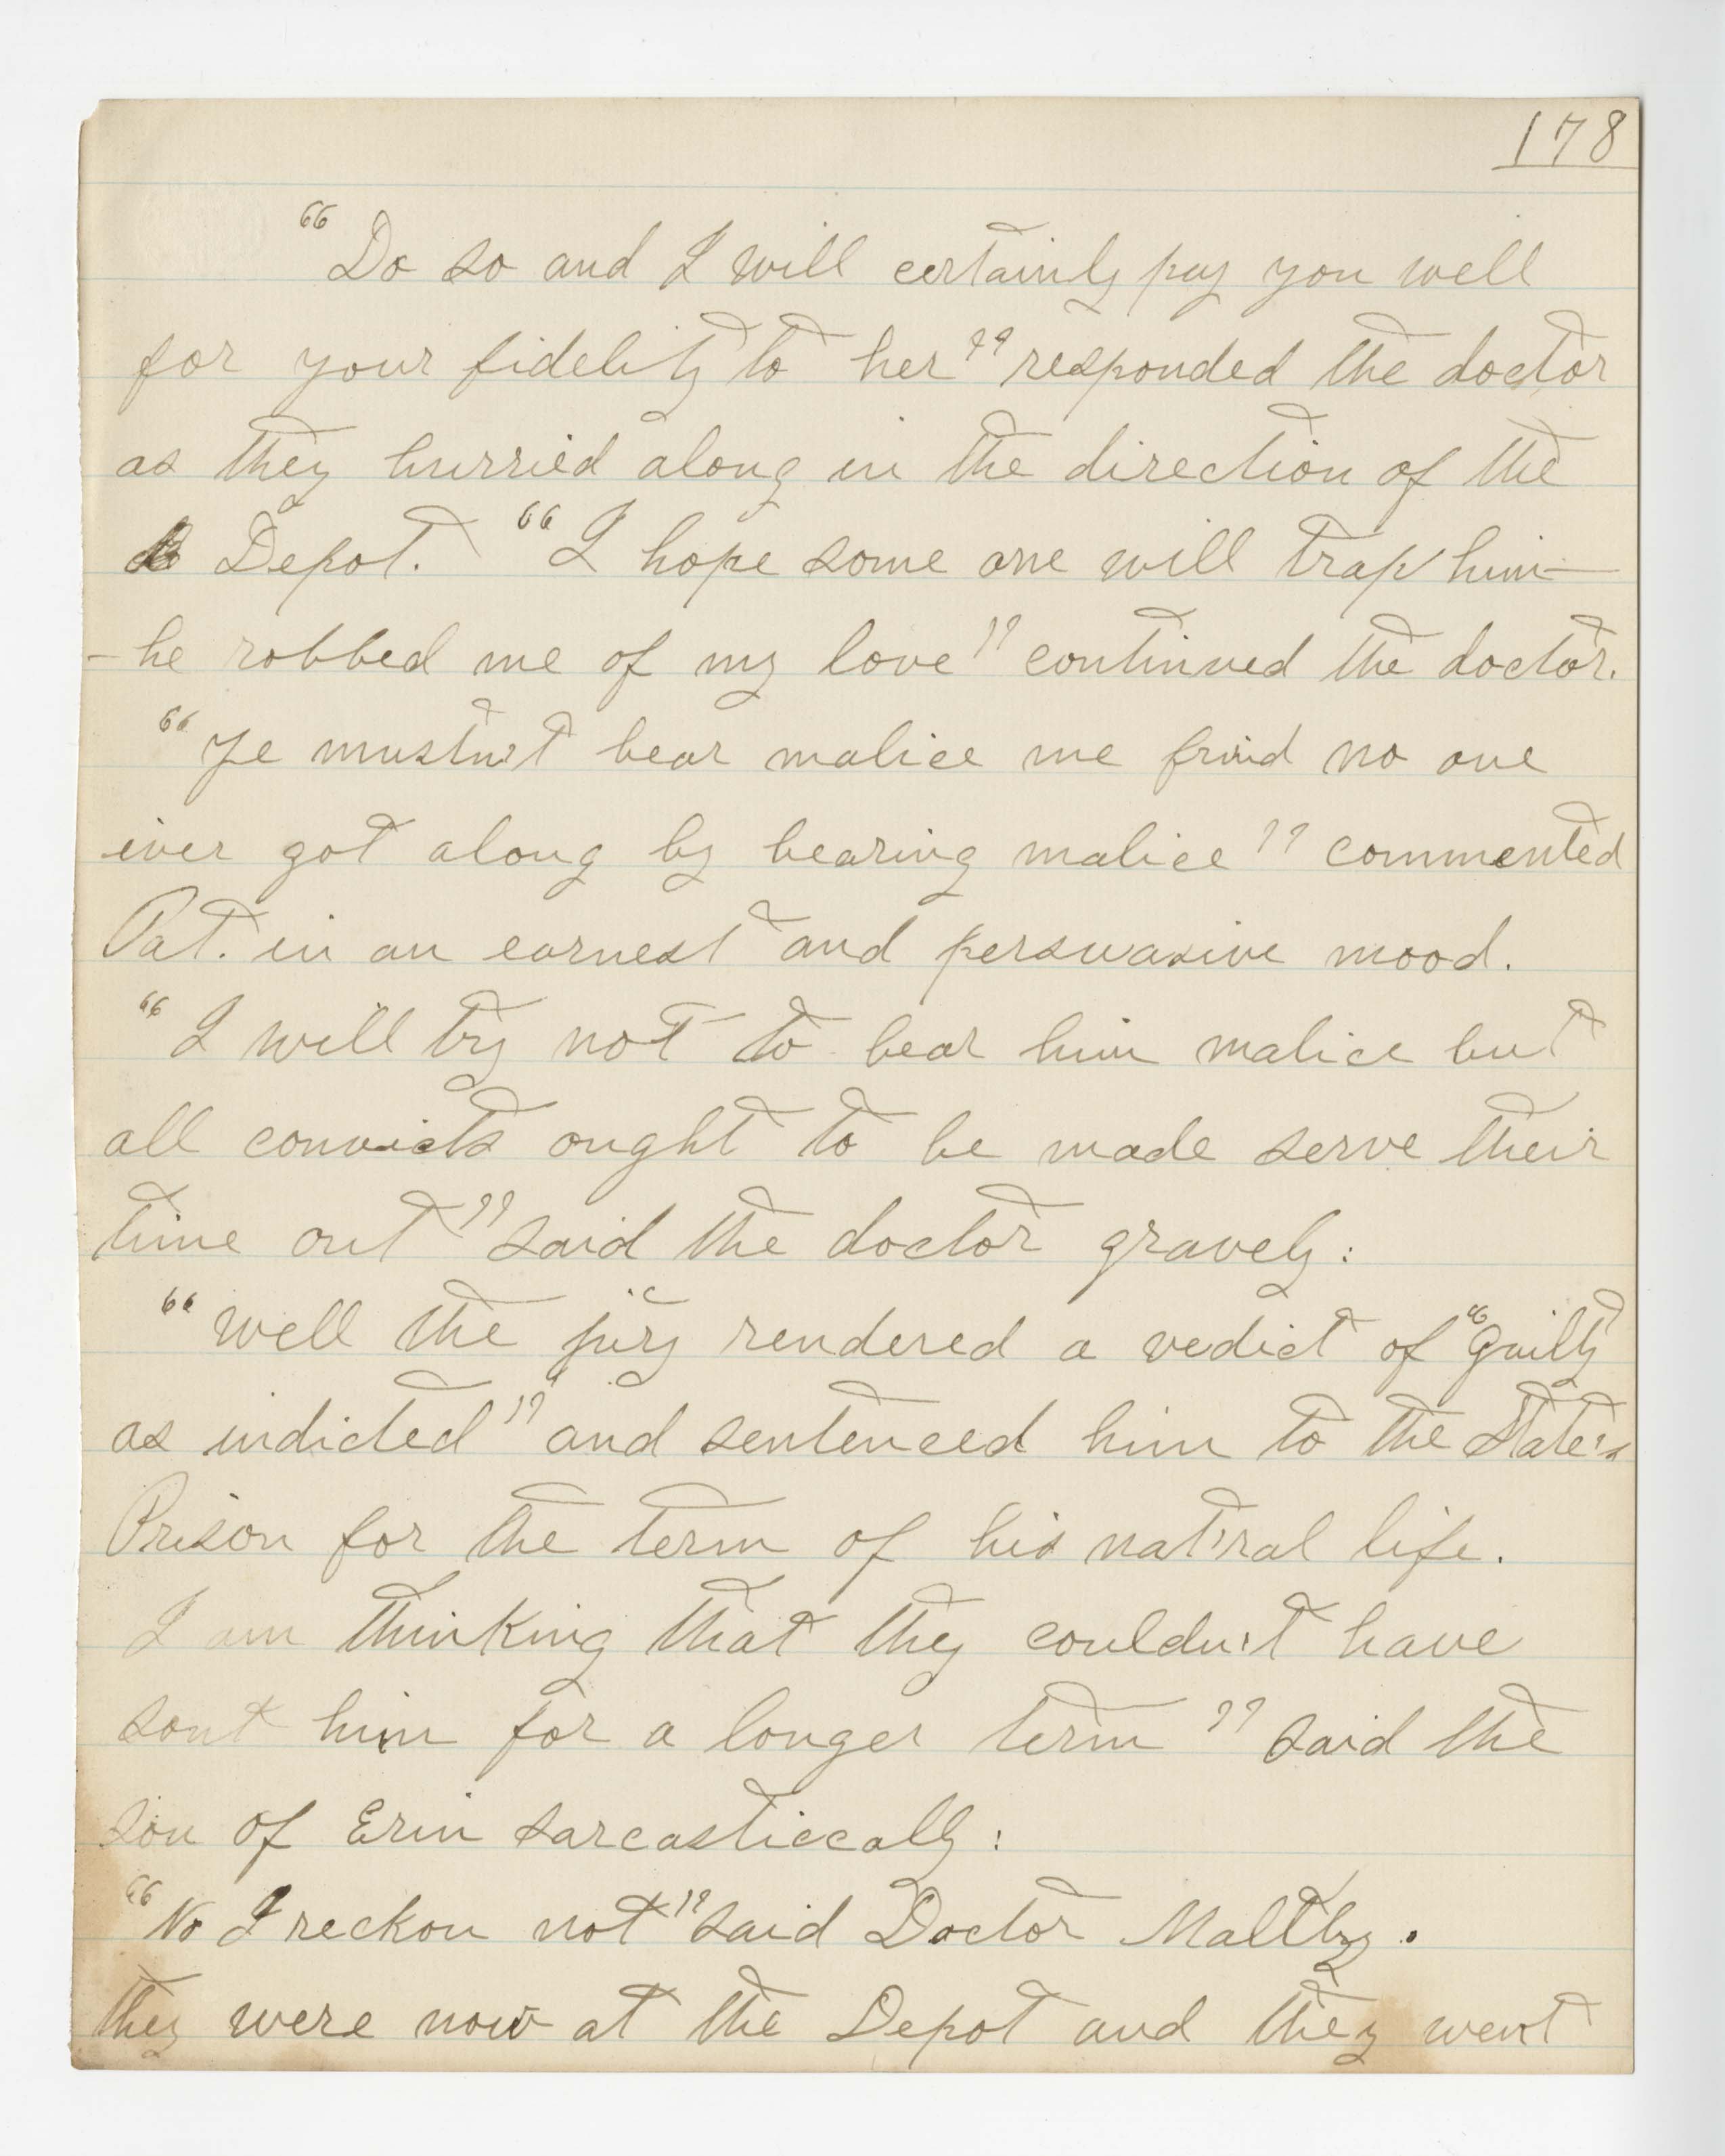 178
"Do so and I will certainly pay you well
for your fidelity to her" responded the doctor
as they hurried along in the direction of the
Depot. "I hope some one will trap him—
—he robbed me of my love" continued the doctor.
"Ye mustn't bear malice me frind no one
iver got along by bearing malice" commented
Pat. in an earnest and persuasive mood.
"I will try not to bear him malice but
all convicts ought to be made serve their
time out" said the doctor gravely:
"well the jury rendered a vedict of "Guilty
as indicted" and sentenced him to the State's
Prison for the term of his nat'ral life.
I am thinking that they couldn't have
sont him for a longer term" said the
son of Erin sarcasticcally:
"No I reckon not" said Doctor Maltby.
they were now at the Depot and they went